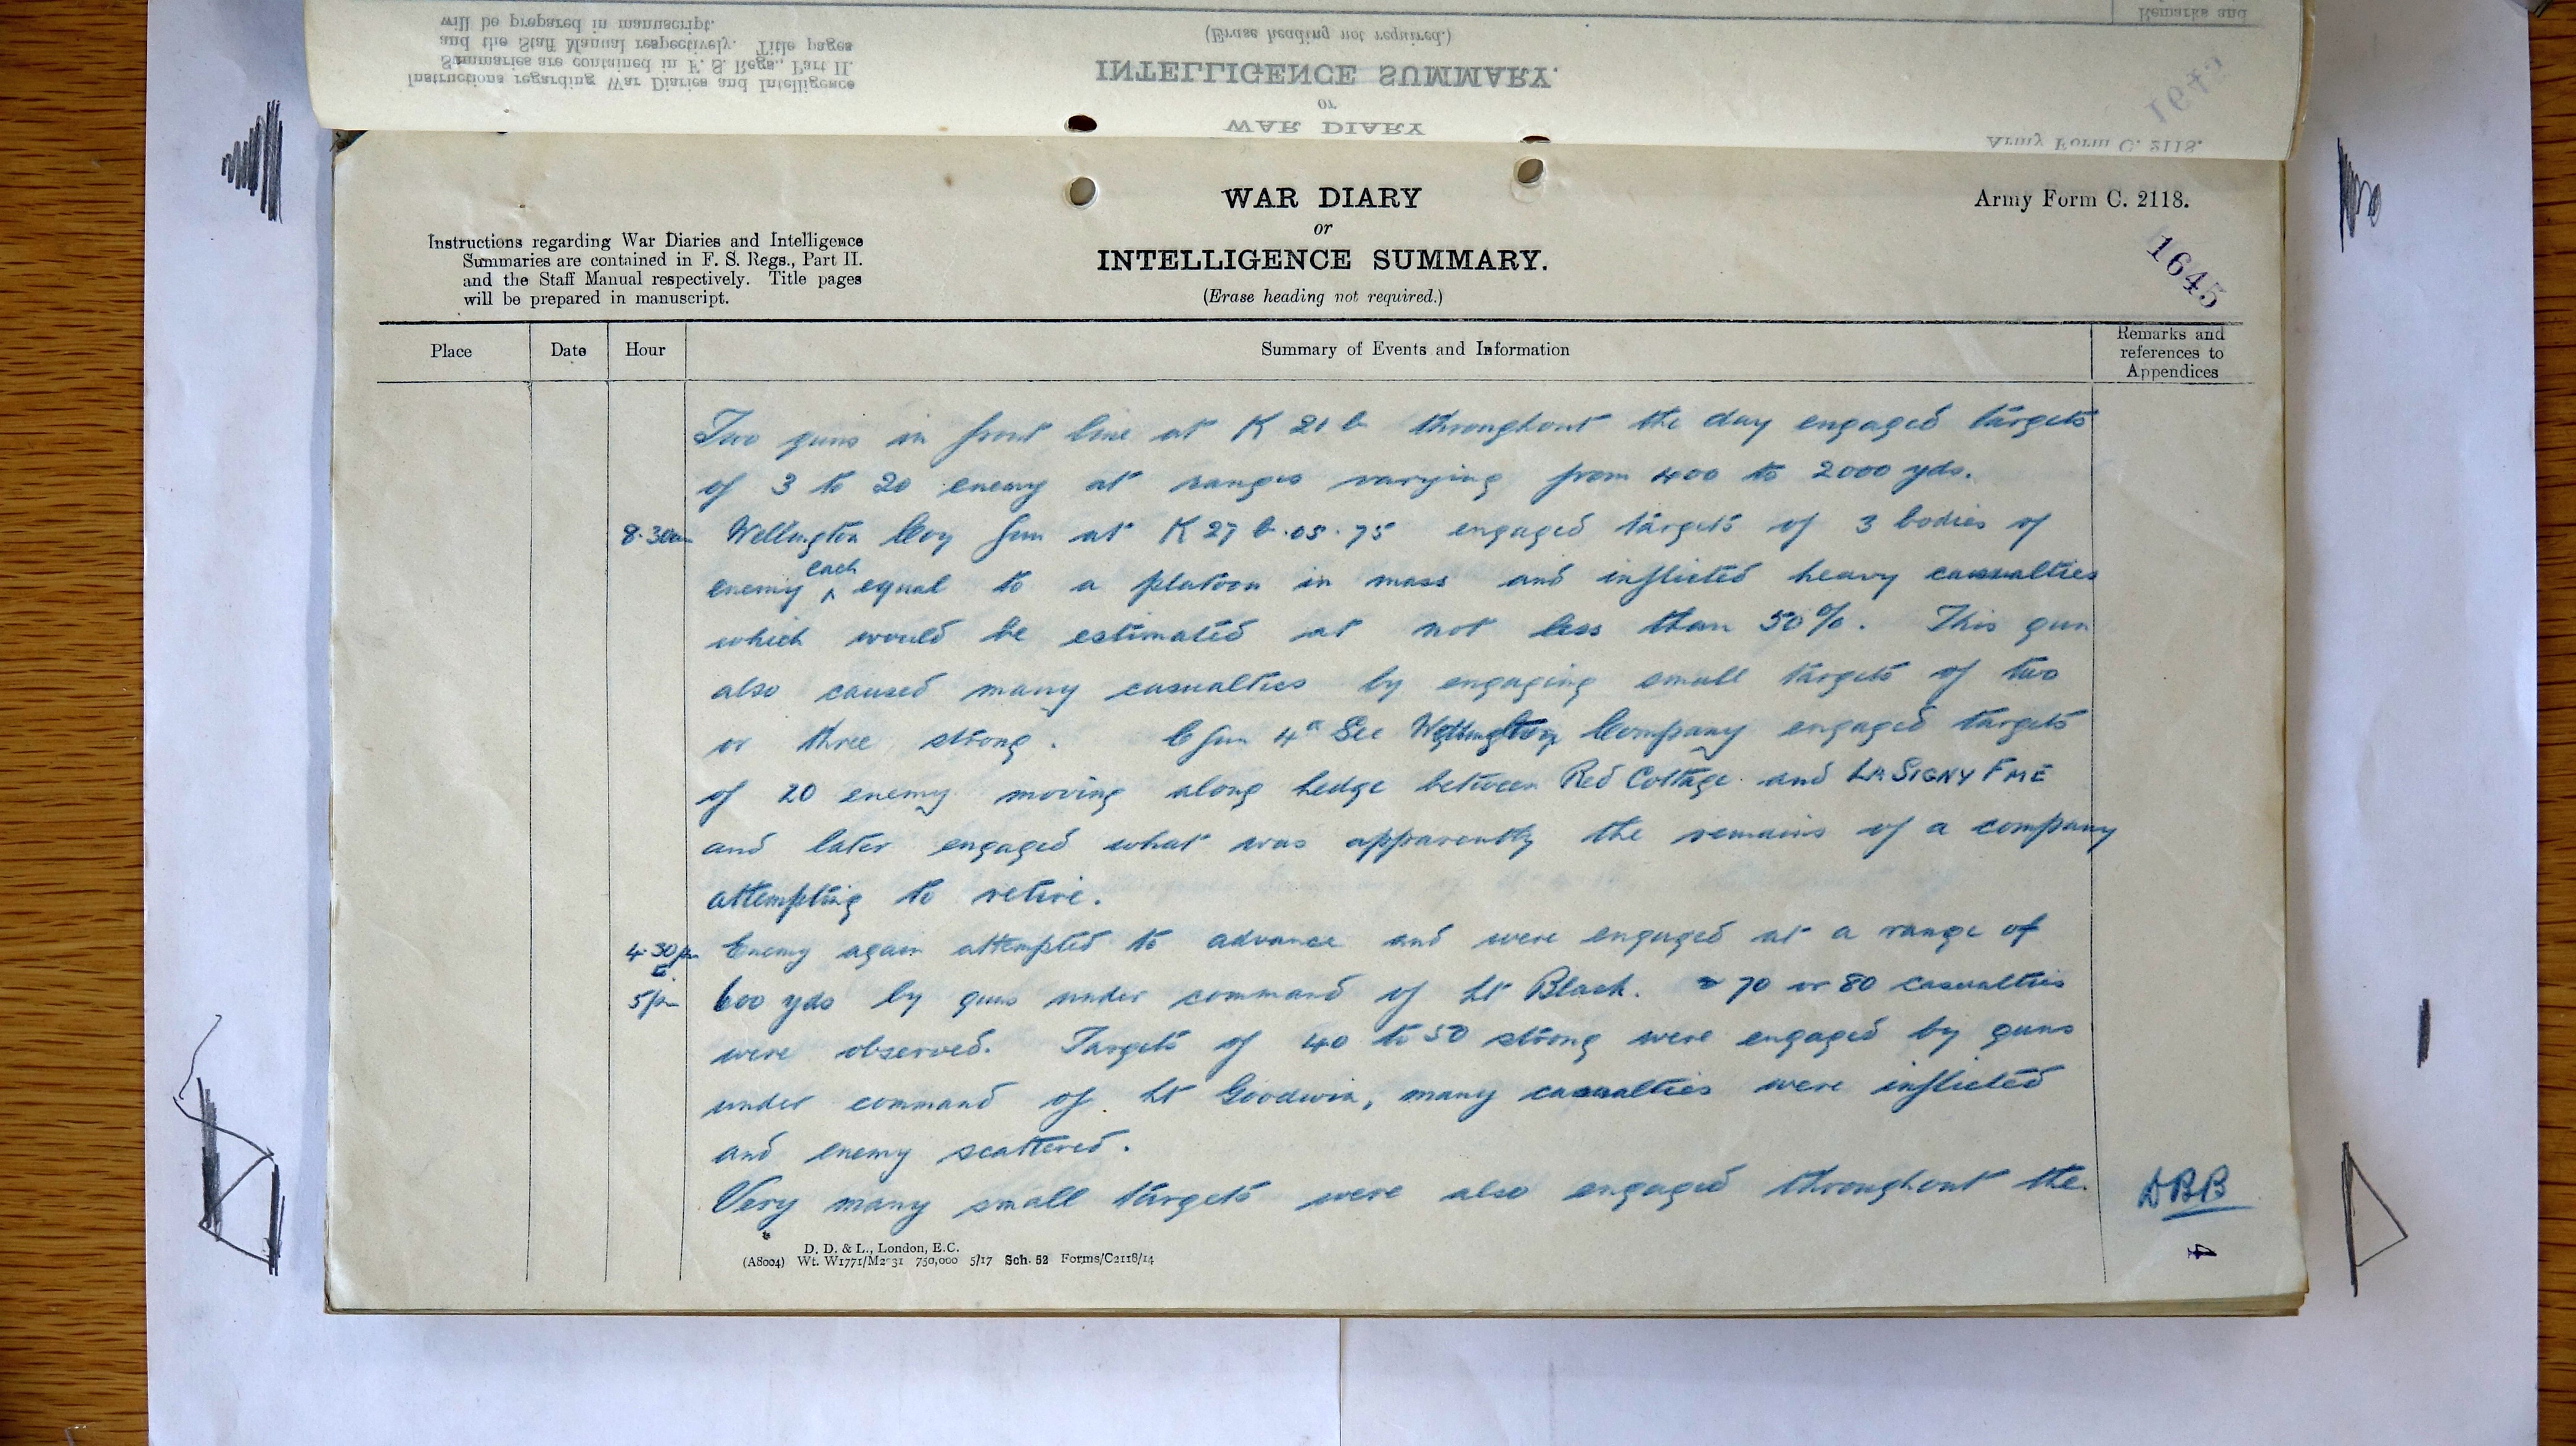 will be prepared in manuscript.
and the Staff Manual respectively. Title pages
Summaries are contained in F. S. Regs., Part II.
Instructions regarding War Diaries and Intelligence
(Erase heading not required.)
INTELLIGENCE SUMMARY.
or
WAR DIARY
Remarks and
Army Form C. 2118.
WAR DIARY
or
INTELLIGENCE SUMMARY.
(Erase heading not required.)
Army Form C. 2118.
1645
Instructions regarding War Diaries and Intelligence
Summaries are contained in F. S. Regs., Part II.
and the Staff Manual respectively. Title pages
will be prepared in manuscript.
Place Date Hour Summary of Events and Information Remarks and references to Appendices
Two guns in front line at K 21 b throughout the day engaged targets
of 3 to 20 enemy at ranges varying from 400 to 2000 yds.
8.30am Wellington Coy Gun at K 27 b.05.75 engaged targets of 3 bodies of
enemy each equal to a platoon in mass and inflicted heavy casualties
which would be estimated at not less than 50%. This gun
also caused many casualties by engaging small targets of two
or three strong. C Gun 4a Sec Wellington Company engaged targets
of 20 enemy moving along hedge between Red Cottage and LA SIGNY FME
and later engaged what was apparently the remains of a company
attempting to retire.
4.30pm Enemy again attempted to advance and were engaged at a range of
5pm 600 yds by guns under command of Lt Black. 70 or 80 casualties
were observed. Targets of 40 to 50 strong were engaged by guns
under command of Lt Goodwin, many casualties were inflicted
and enemy scattered.
Very many small targets were also engaged throughout the
DBB
4
D. D. & L., London, E.C.
(A8004) Wt. W1771/M2 31 750,000 5/17 Sch. 52 Forms/C2118/14